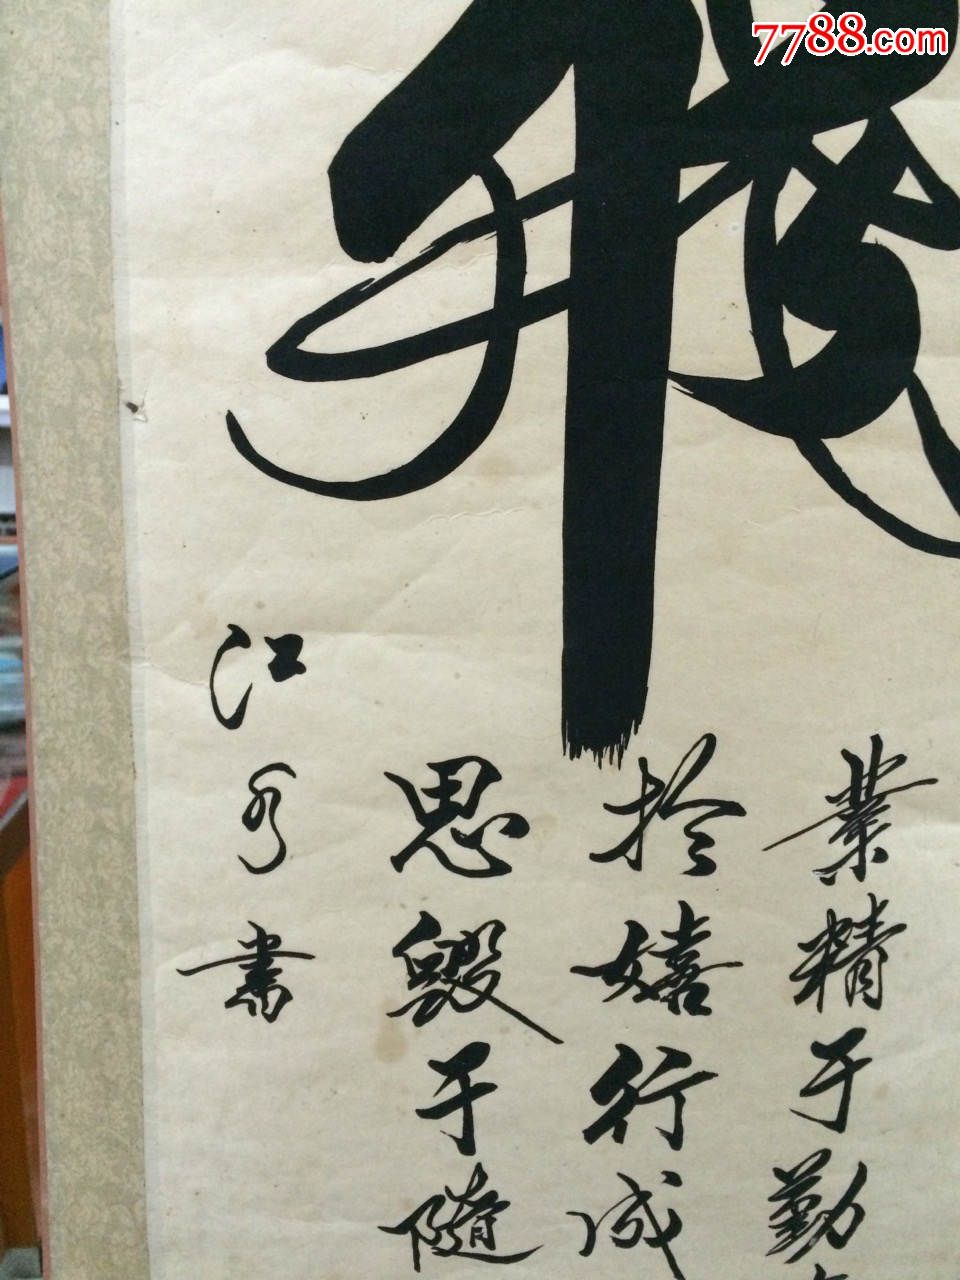 7788.com
業精于勤
於嬉行成
思毀于隨
江
書